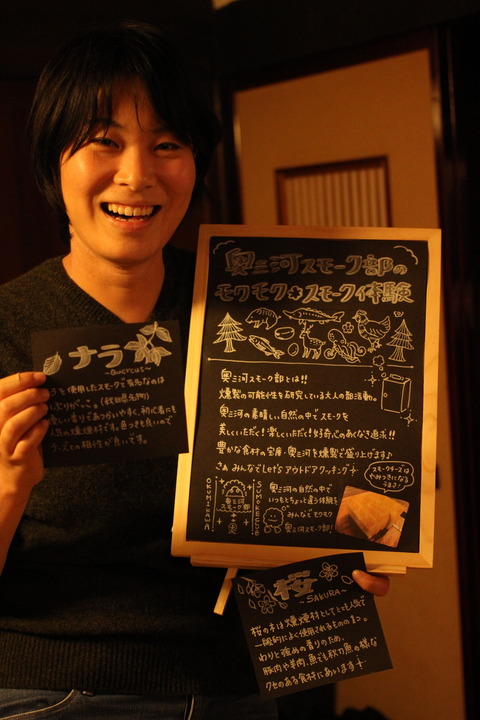 奥三河スモーク部の
モクモク スモーク体験
奥三河スモーク部とは!!
燻製の可能性を研究している大人の部活動。
奥三河の素晴しい自然の中でスモークを
美しくいただく!楽しくいただく!好奇心のあくなき追求!!
豊かな食材の宝庫・奥三河を燻製で盛り上げます♪
さぁ みんなでLet'sアウトドアクッキング
奥三河の自然の中で
いつもとちょっと違う体験を
みんなでモクモク
奥三河スモーク部!
OKUMIKAWA
奥三河
スモーク部
SUMOKUBU
スモークチーズは
やみつきになる
うまさ!
ナラ
使用したスモークで有名なのは
いぶりがっこ。(秋田県名物)
香りであつかいやすく、初心者にも
人気の燻煙材です。色づきも良いので
チーズとの相性が良いです。
桜
~SAKURA~
桜の木は燻煙材としてとても人気で
一般的によく使用されるものの1つ。
わりと強めの香りのため、
豚肉や羊肉、魚でも秋刀魚の様な
クセのある食材にあいます